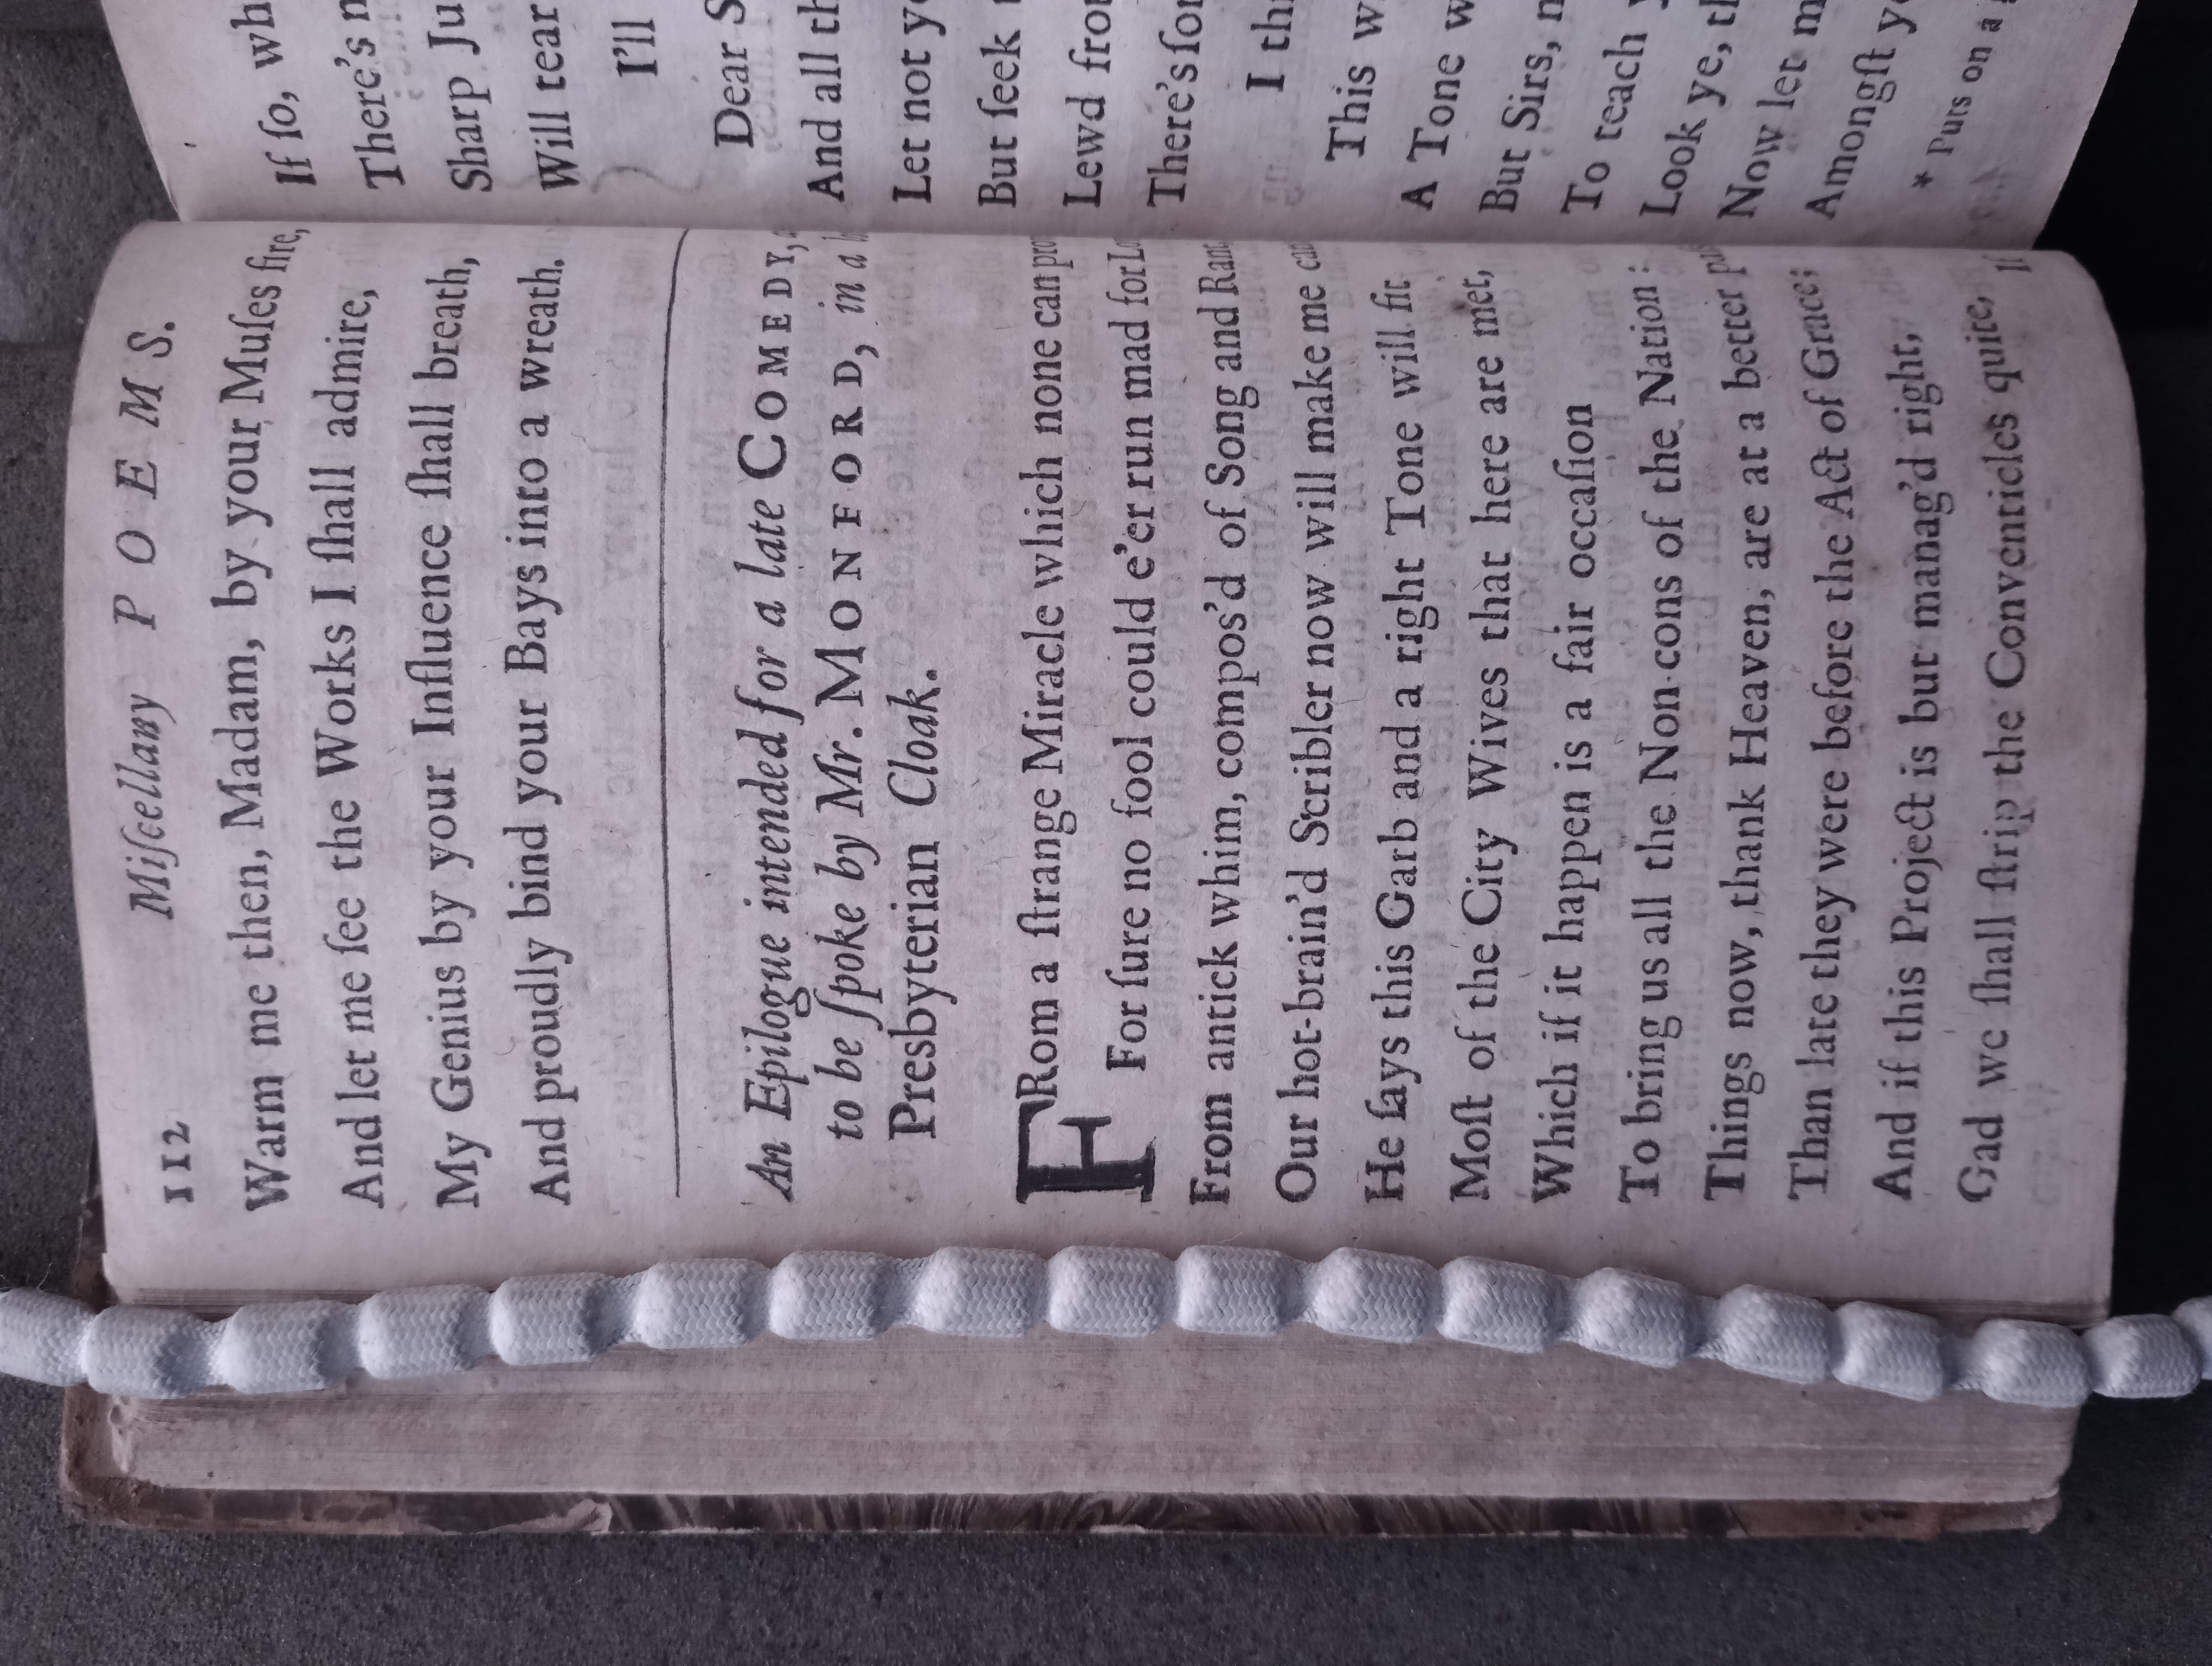 112 Miſcellany POEMS.
Warm me then, Madam, by your Muſes fire,
And let me ſee the Works I ſhall admire,
My Genius by your Influence ſhall breath,
And proudly bind your Bays into a wreath.
An Epilogue intended for a late COMEDY,
to be ſpoke by Mr. MONFORD, in a
Presbyterian Cloak.
FRom a ſtrange Miracle which none can
For ſure no fool could e'er run mad for
From antick whim, compos'd of Song and
Our hot-brain'd Scribler now will make me
He ſays this Garb and a right Tone will fit
Moſt of the City Wives that here are met,
Which if it happen is a fair occaſion
To bring us all the Non-cons of the Nation:
Things now, thank Heaven, are at a better
Than late they were before the Act of Grace;
And if this Project is but manag'd right,
Gad we ſhall ſtrip the Conventicles quite,
If ſo,
There's
Sharp
Will tear
I'll
Dear
And all
Let not
But ſeek
Lewd
There's
I
This
A Tone
But Sirs,
To teach
Look ye,
Now let
Amongſt
* Puts on a